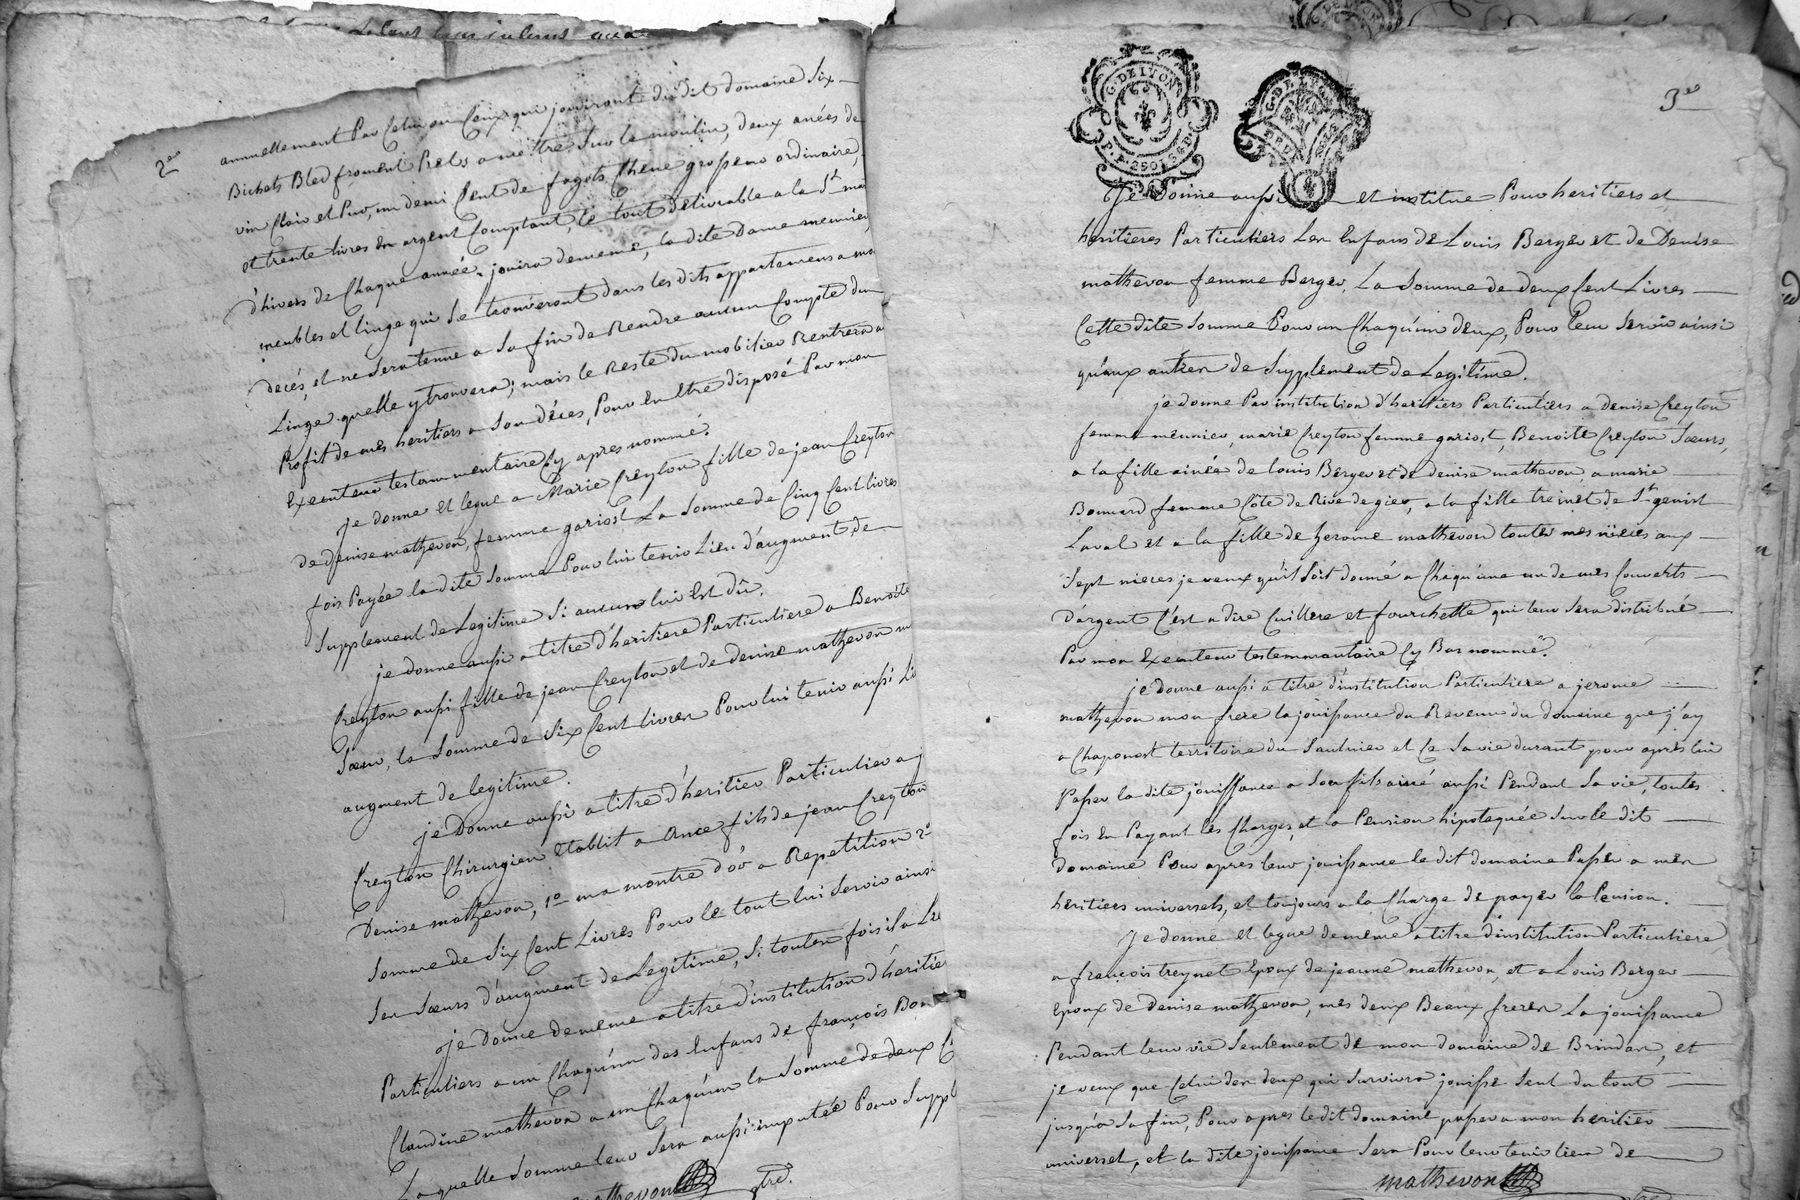 2e
annuellement Par Celui ou Ceux qui jouiront du dit domaine Six
Bichets Bled froment Rels a mettre Sur le moulin, deux anées de
vin Clair et Pur, un demi Cent de fagots Chene grosseur ordinaire,
et trente livres en argent Comptant, le tout delivrable a la St mar
d'hivers de Chaque année; jouira de meme, la dite Dame meunier,
meubles et linge qui Se trouveront dans les dits appartemens a mon
decés, et ne Sera tenue a Sa fin de Rendre aucun Compte du
Linge quelle y trouvera; mais le Reste du mobilier Rentrera a
Profit de mes heritiers a Son déces, Pour en Etre disposé Par mon
Executeur testammentaire Cy apres nommé.
je donne et legue a Marie Creyton fille de jean Creyton
de Denise mathevon, femme gariost La Somme de Cinq Cent livres
fois Payée la dite Somme Pour lui tenir Lieu d'augment, de
Supplement de Legitime Si aucun lui Est dû.
je donne aussi a titre d'heritiere Particuliere a Benoite
Creyton aussi fille de jean Creyton et de denise mathevon m
Sœur, la Somme de Six Cent livres Pour lui tenir aussi Li
augment de legitime.
je Donne aussi a titre d'heritier Particulier a j
Creyton Chirurgien Etablit a Anse fils de jean Creyton
Denise mathevon, 1o ma montre d'or a Repetition 2o
Somme de Six Cent Livres Pour le tout lui Servir ainsi
Ses Sœurs d'augment de Legitime, Si toutes fois il a Le
je Donne de même a titre d'institution d'héritie
Particuliers a un Chaq'un des Enfans de françois Bon
Claudine mathevon a un Chaq'un la Somme de deux C
Laquelle Somme leur Sera aussi imputée Pour Suppl
mathevon
G. DE LYON
G. DE LYON
3e
Je Donne aussi et institue Pour heritiers et
heritieres Particuliers Les Enfans de Louis Berger et de Denise
mathevon femme Berger, La Somme de deux Cent Livres
Cette dite Somme Pour un Chaq'un deux, Pour leur Servir ainsi
qu'aux autres de Supplement de Legitime.
je donne Par institution d'heritiers Particuliers a Denise Creyton
femme meunier, marie Creyton femme gariost, Benoite Creyton Sœurs,
a la fille ainée de louis Berger et de denise mathevon, a marie
Bonnard femme Côte de Rive de gier, a la fille treinet de St genist
Laval et a la fille de Jerome mathevon toutes mes niéces aux
Sept nieces je veux qu'il Soit donné a Chaq'une un de mes Couverts
D'argent C'est a dire Cuillere et fourchette qui leur Sera distribué
Par mon Executeur testemmentaire Cy Bas nommé.
je donne aussi a titre d'institution Particuliere a jerome
mathevon mon frere la jouissance du Revenu du domaine que j'ay
a Chaponost territoire du Saulnier et Ce Sa vie durant pour après lui
Passer la dite jouissance a Son fils ainé aussi Pendant Sa vie, toutes
fois En Payant les Charges, et la Pension hipotequée Sur le dit
domaine Pour après leur jouissance le dit domaine Passer a mes
héritiers universels, et toujours a la Charge de payer la Pension.
Je donne et legue de même a titre d'institution Particuliere
a françois treynet Epoux de jeanne mathevon, et a Louis Berger
Epoux de Denise mathevon, mes deux Beaux freres La jouissance
Pendant leur vie Seulement de mon domaine de Brindas, et
je veux que Celui des deux qui Survivra jouisse Seul du tout
jusqu'a Sa fin, Pour apres le dit domaine passer a mon heritier
universel, et la dite jouissance Sera Pour leur tenir lieu de
mathevon